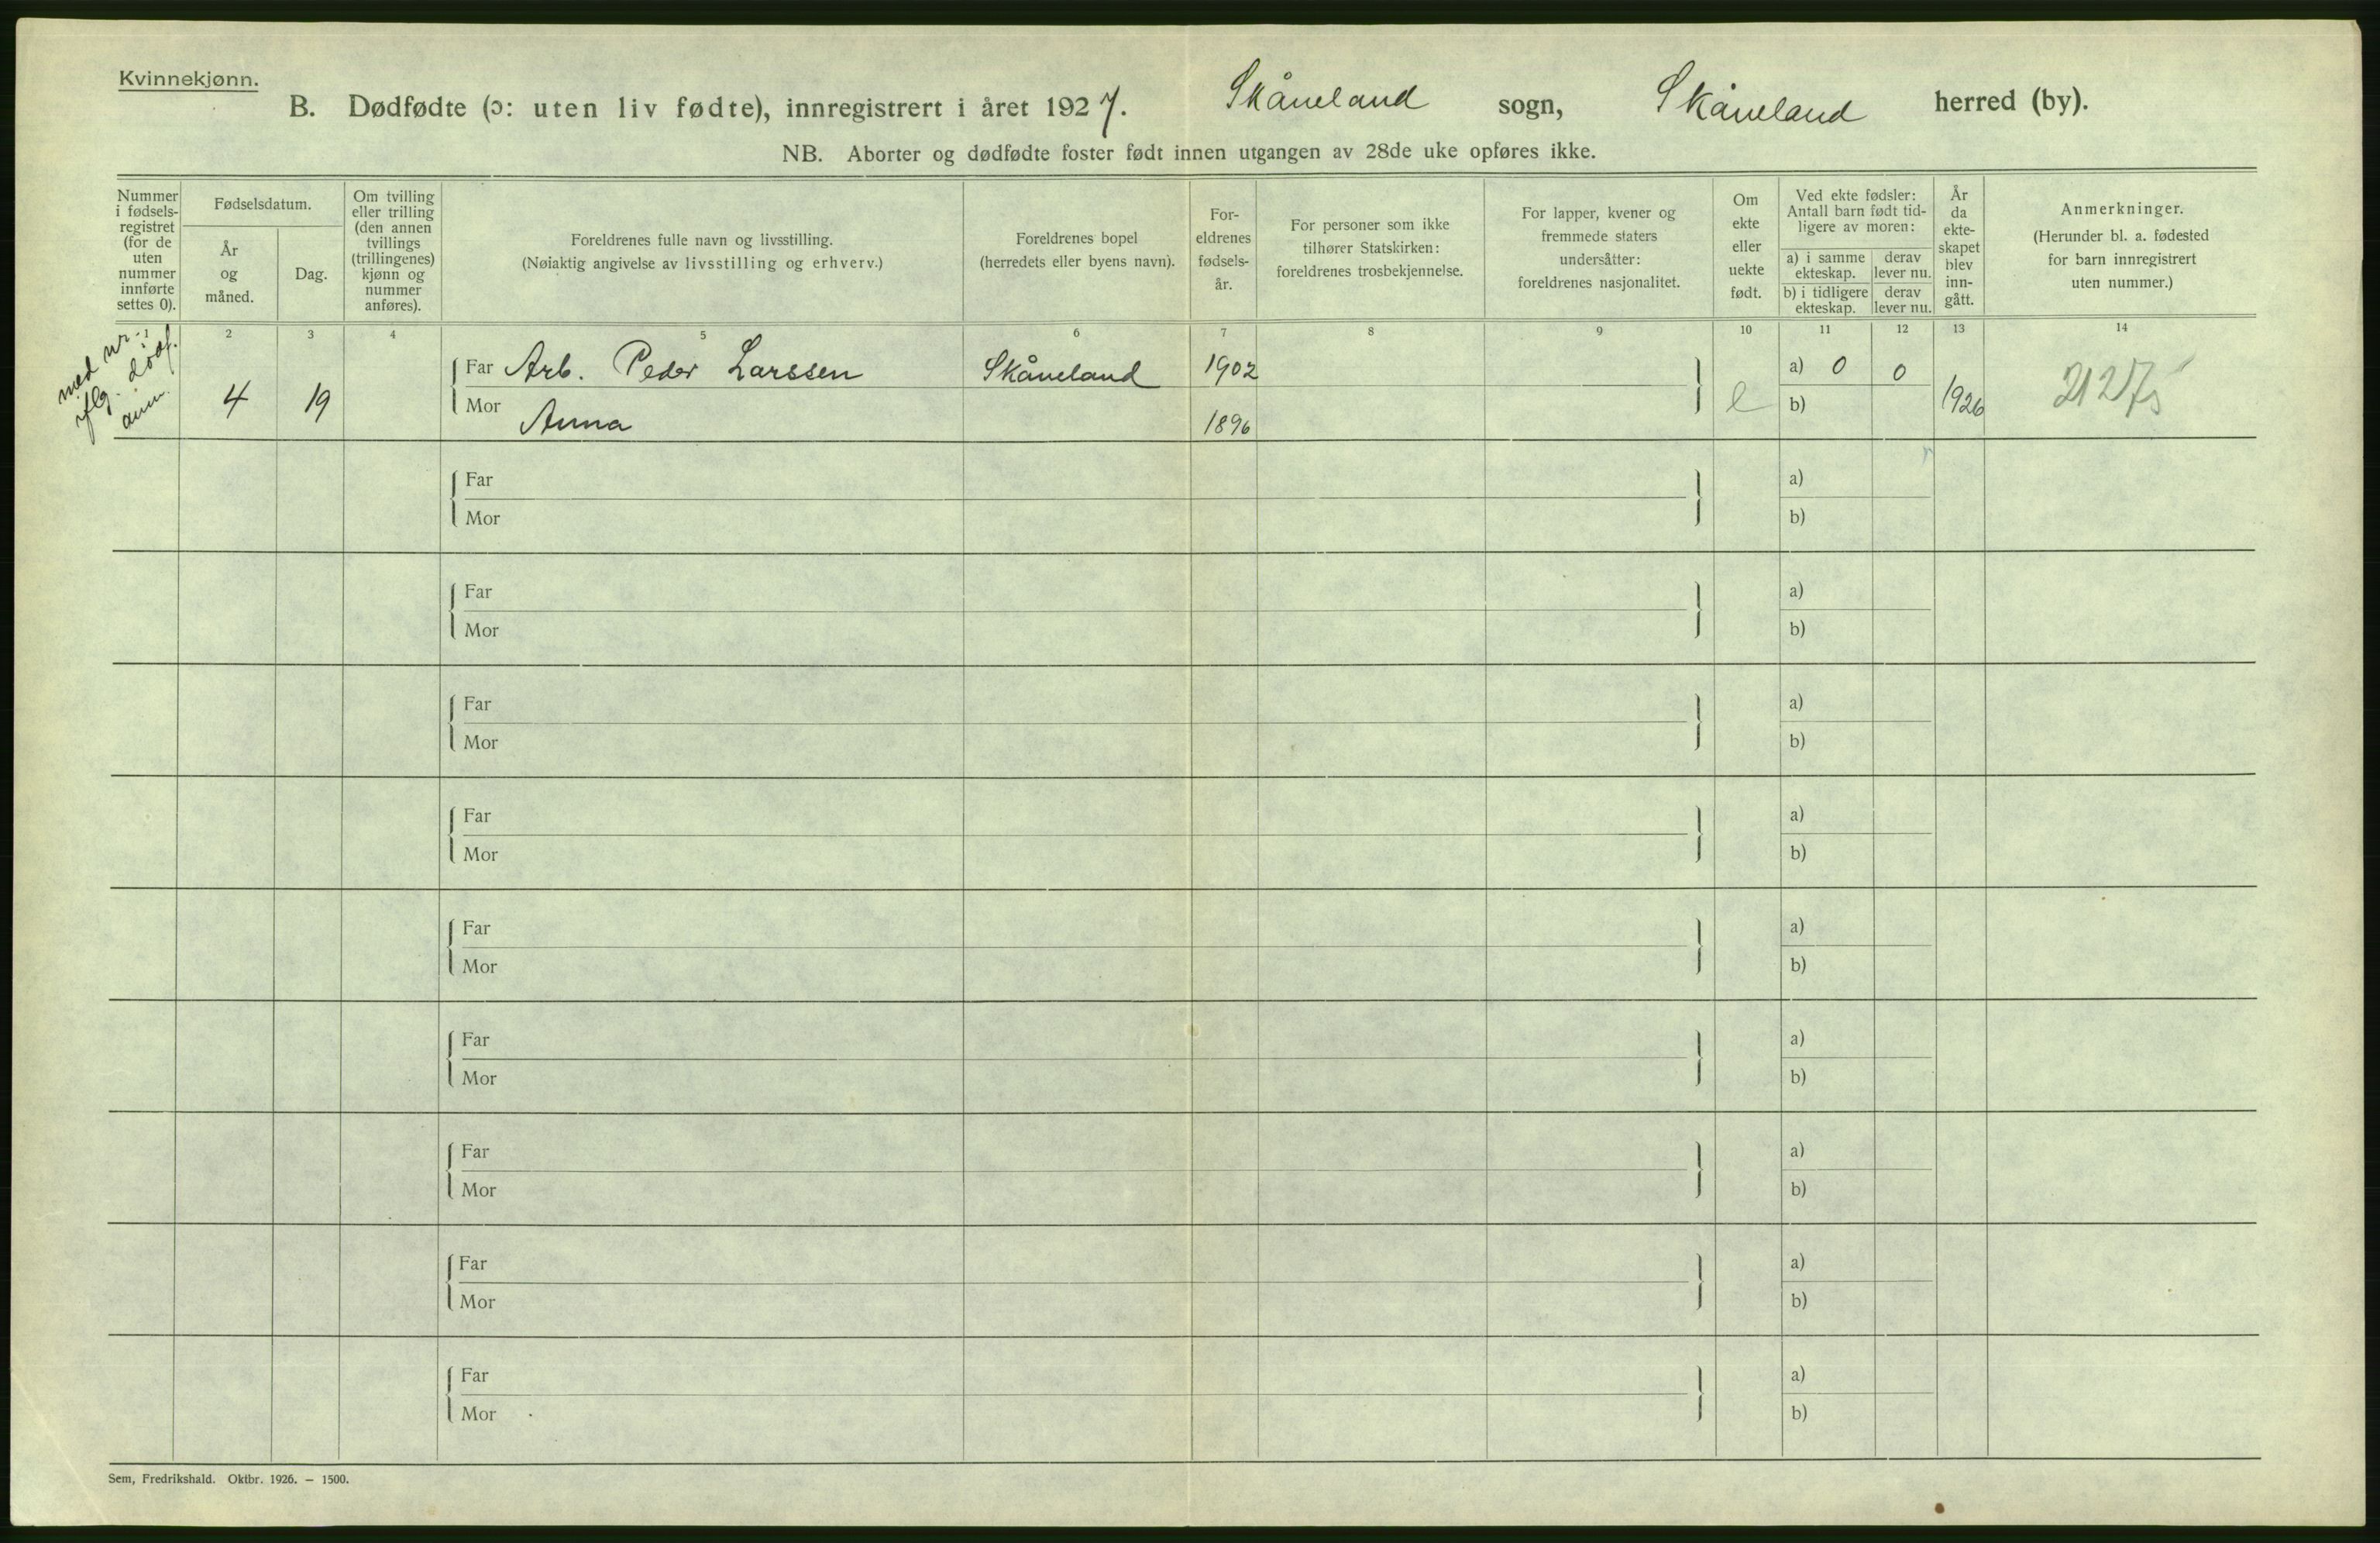 Kvinnekjønn.
B. Dødfødte (ɔ: uten liv fødte), innregistrert i året 1927. Skåneland sogn, Skåneland herred (by).
NB. Aborter og dødfødte foster født innen utgangen av 28de uke opføres ikke.
Nummer i fødsels-registret (for de uten nummer innførte settes 0).
Fødselsdatum.
År og måned.
Dag.
Om tvilling eller trilling (den annen tvillings (trillingenes) kjønn og nummer anføres).
Foreldrenes fulle navn og livsstilling.
(Nøiaktig angivelse av livsstilling og erhverv.)
Foreldrenes bopel
(herredets eller byens navn).
For-eldrenes fødsels-år.
For personer som ikke tilhører Statskirken: foreldrenes trosbekjennelse.
For lapper, kvener og fremmede staters undersåtter: foreldrenes nasjonalitet.
Om ekte eller uekte født.
Ved ekte fødsler: Antall barn født tid-ligere av moren:
a) i samme ekteskap.
derav lever nu.
b) i tidligere ekteskap.
derav lever nu.
År da ekte-skapet blev inn-gått.
Anmerkninger.
(Herunder bl. a. fødested for barn innregistrert uten nummer.)
1 2 3 4 5 6 7 8 9 10 11 12 13 14
med nr. i
flg. dødf.
anm.
4 19
Far Arb. Peder Larssen Skåneland 1902 a) 0 0
Mor Anna 1896 e b) 1926
2127
Far a)
Mor b)
Far a)
Mor b)
Far a)
Mor b)
Far a)
Mor b)
Far a)
Mor b)
Far a)
Mor b)
Far a)
Mor b)
Far a)
Mor b)
Far a)
Mor b)
Sem, Fredrikshald. Oktbr. 1926. — 1500.